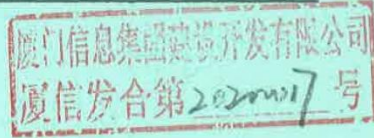 厦门信息集团建设开发有限公司
厦信发合第2020017号